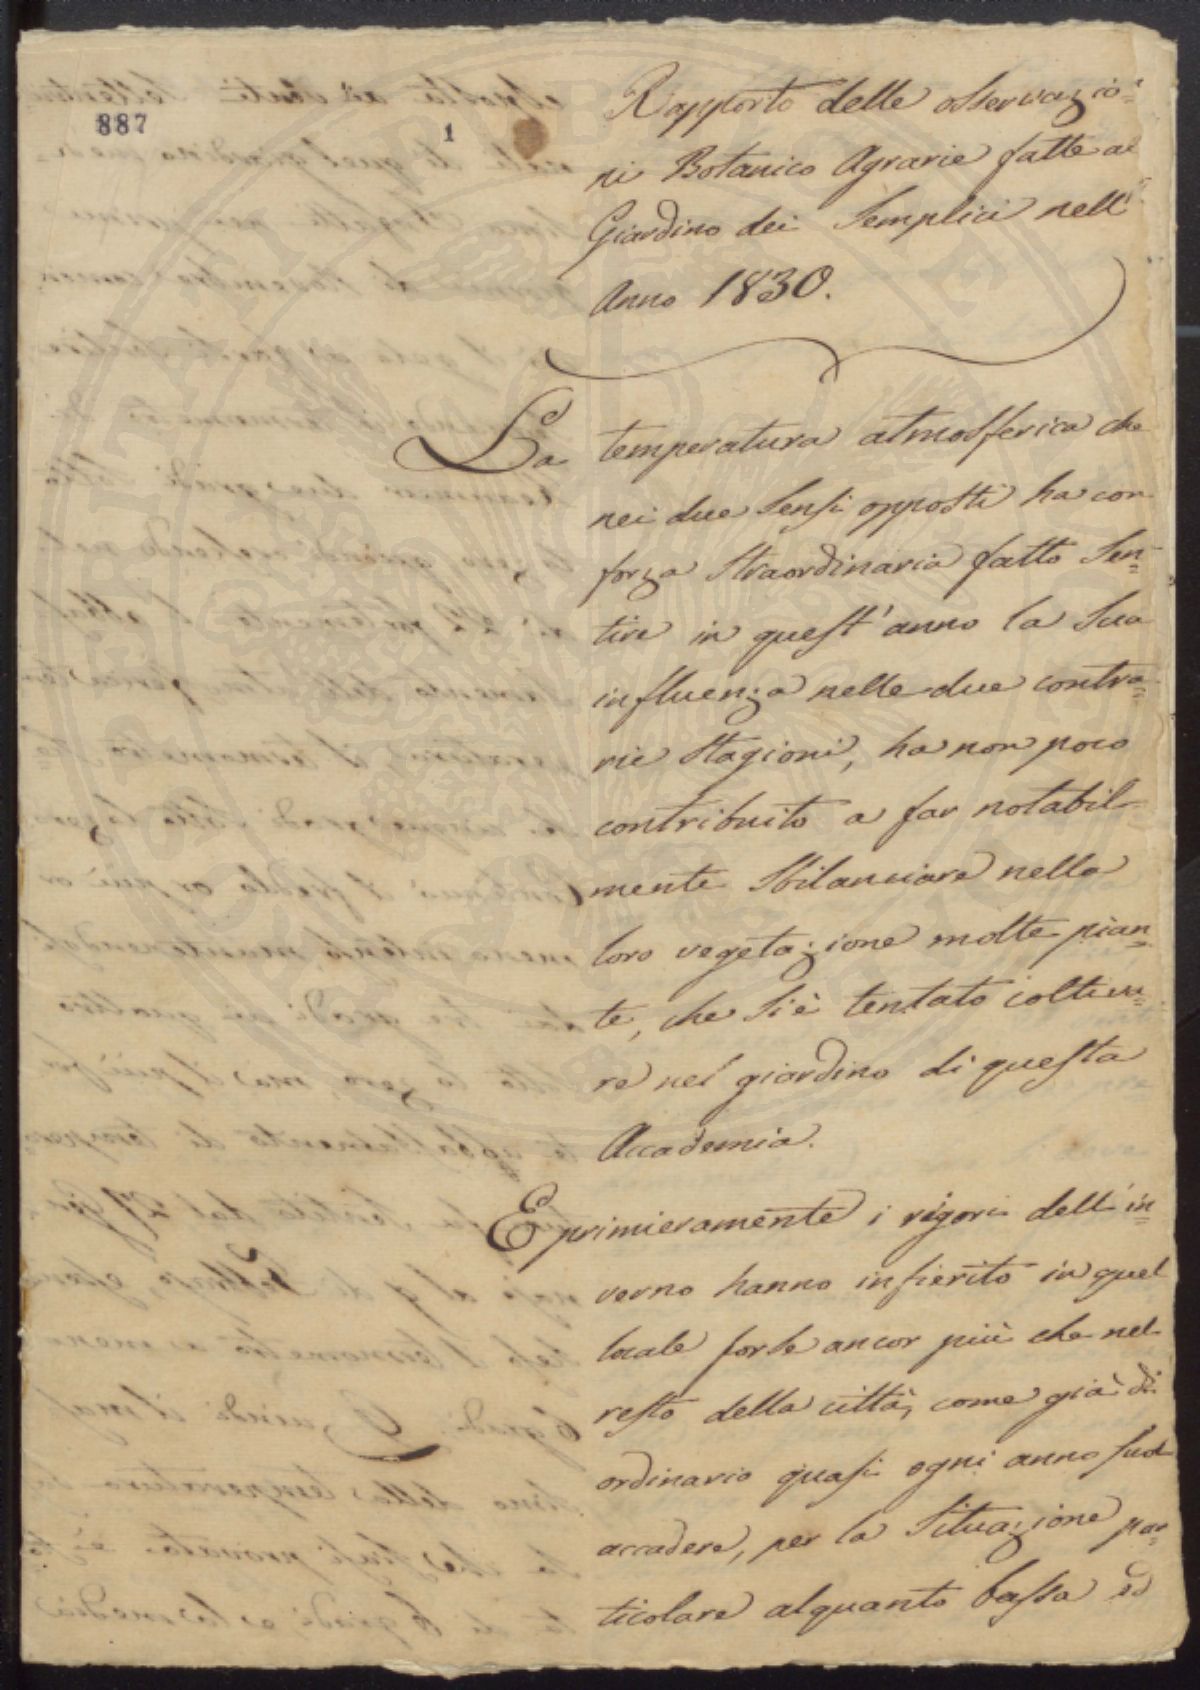 887
1
Rapporto delle osservazio=
ni Botanico Agrarie fatte al
Giardino dei Semplici nell'
Anno 1830.
La temperatura atmosferica che
nei due sensi opposti ha con
forza straordinaria fatto sen=
tire in quest'anno la sua
influenza nelle due contra=
rie stagioni, ha non poco
contribuito a far notabil=
mente sbilanciare nella
loro vegetazione molte pian=
te, che si è tentato coltiva=
re nel giardino di questa
Accademia.
E primieramente i rigori dell'in=
verno hanno infierito in quel
locale forse ancor più che nel
resto della città, come già di
ordinario quasi ogni anno suol
accadere, per la situazione par=
ticolare alquanto bassa ed